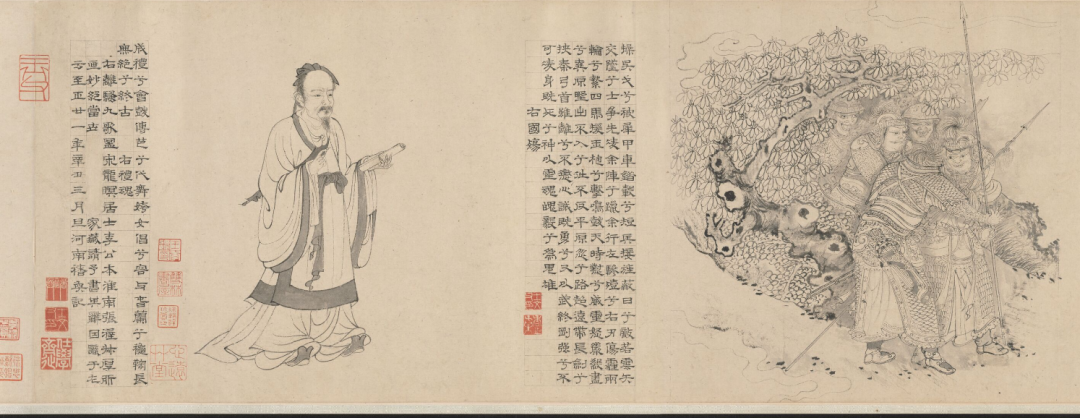 操吳戈兮被犀甲車錯轂兮短兵接旌蔽日兮敵若雲矢
交墜兮士爭先凌余陣兮躐余行左驂殪兮右刃傷霾兩
輪兮縶四馬援玉枹兮擊鳴鼓天時懟兮威靈怒嚴殺盡
兮棄原壄出不入兮往不反平原忽兮路超遠帶長劍兮
挾秦弓首雖離兮不懲心誠既勇兮又以武終剛强兮不
可凌身既死兮神以靈魂魄毅兮爲鬼雄
右國殤
成禮兮會鼓傳芭兮代舞姱女倡兮容與春蘭兮穐鞠長
無絕兮終古 右禮魂
右離騷九歌圖宋龍眠居士李公本淮南張渥叔厚所
妙絕當世 家藏請予書其辭因識于左
云至正廿一年辛丑三月旦河南褚奐記